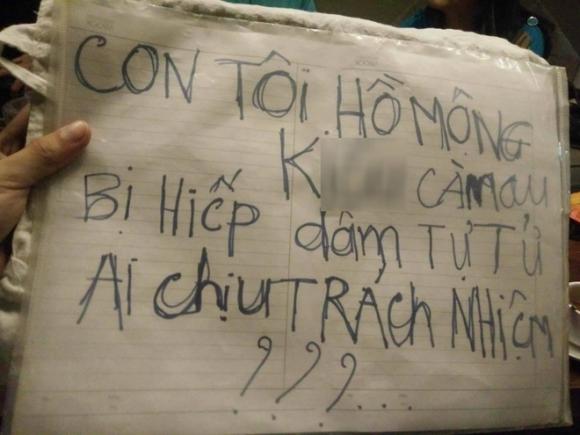 CON TÔI HỒ MỘNG
CÀMAU
BỊ HIẾP dâm TỰ TỬ
AI chịu TRÁCh NHIỆM
???...